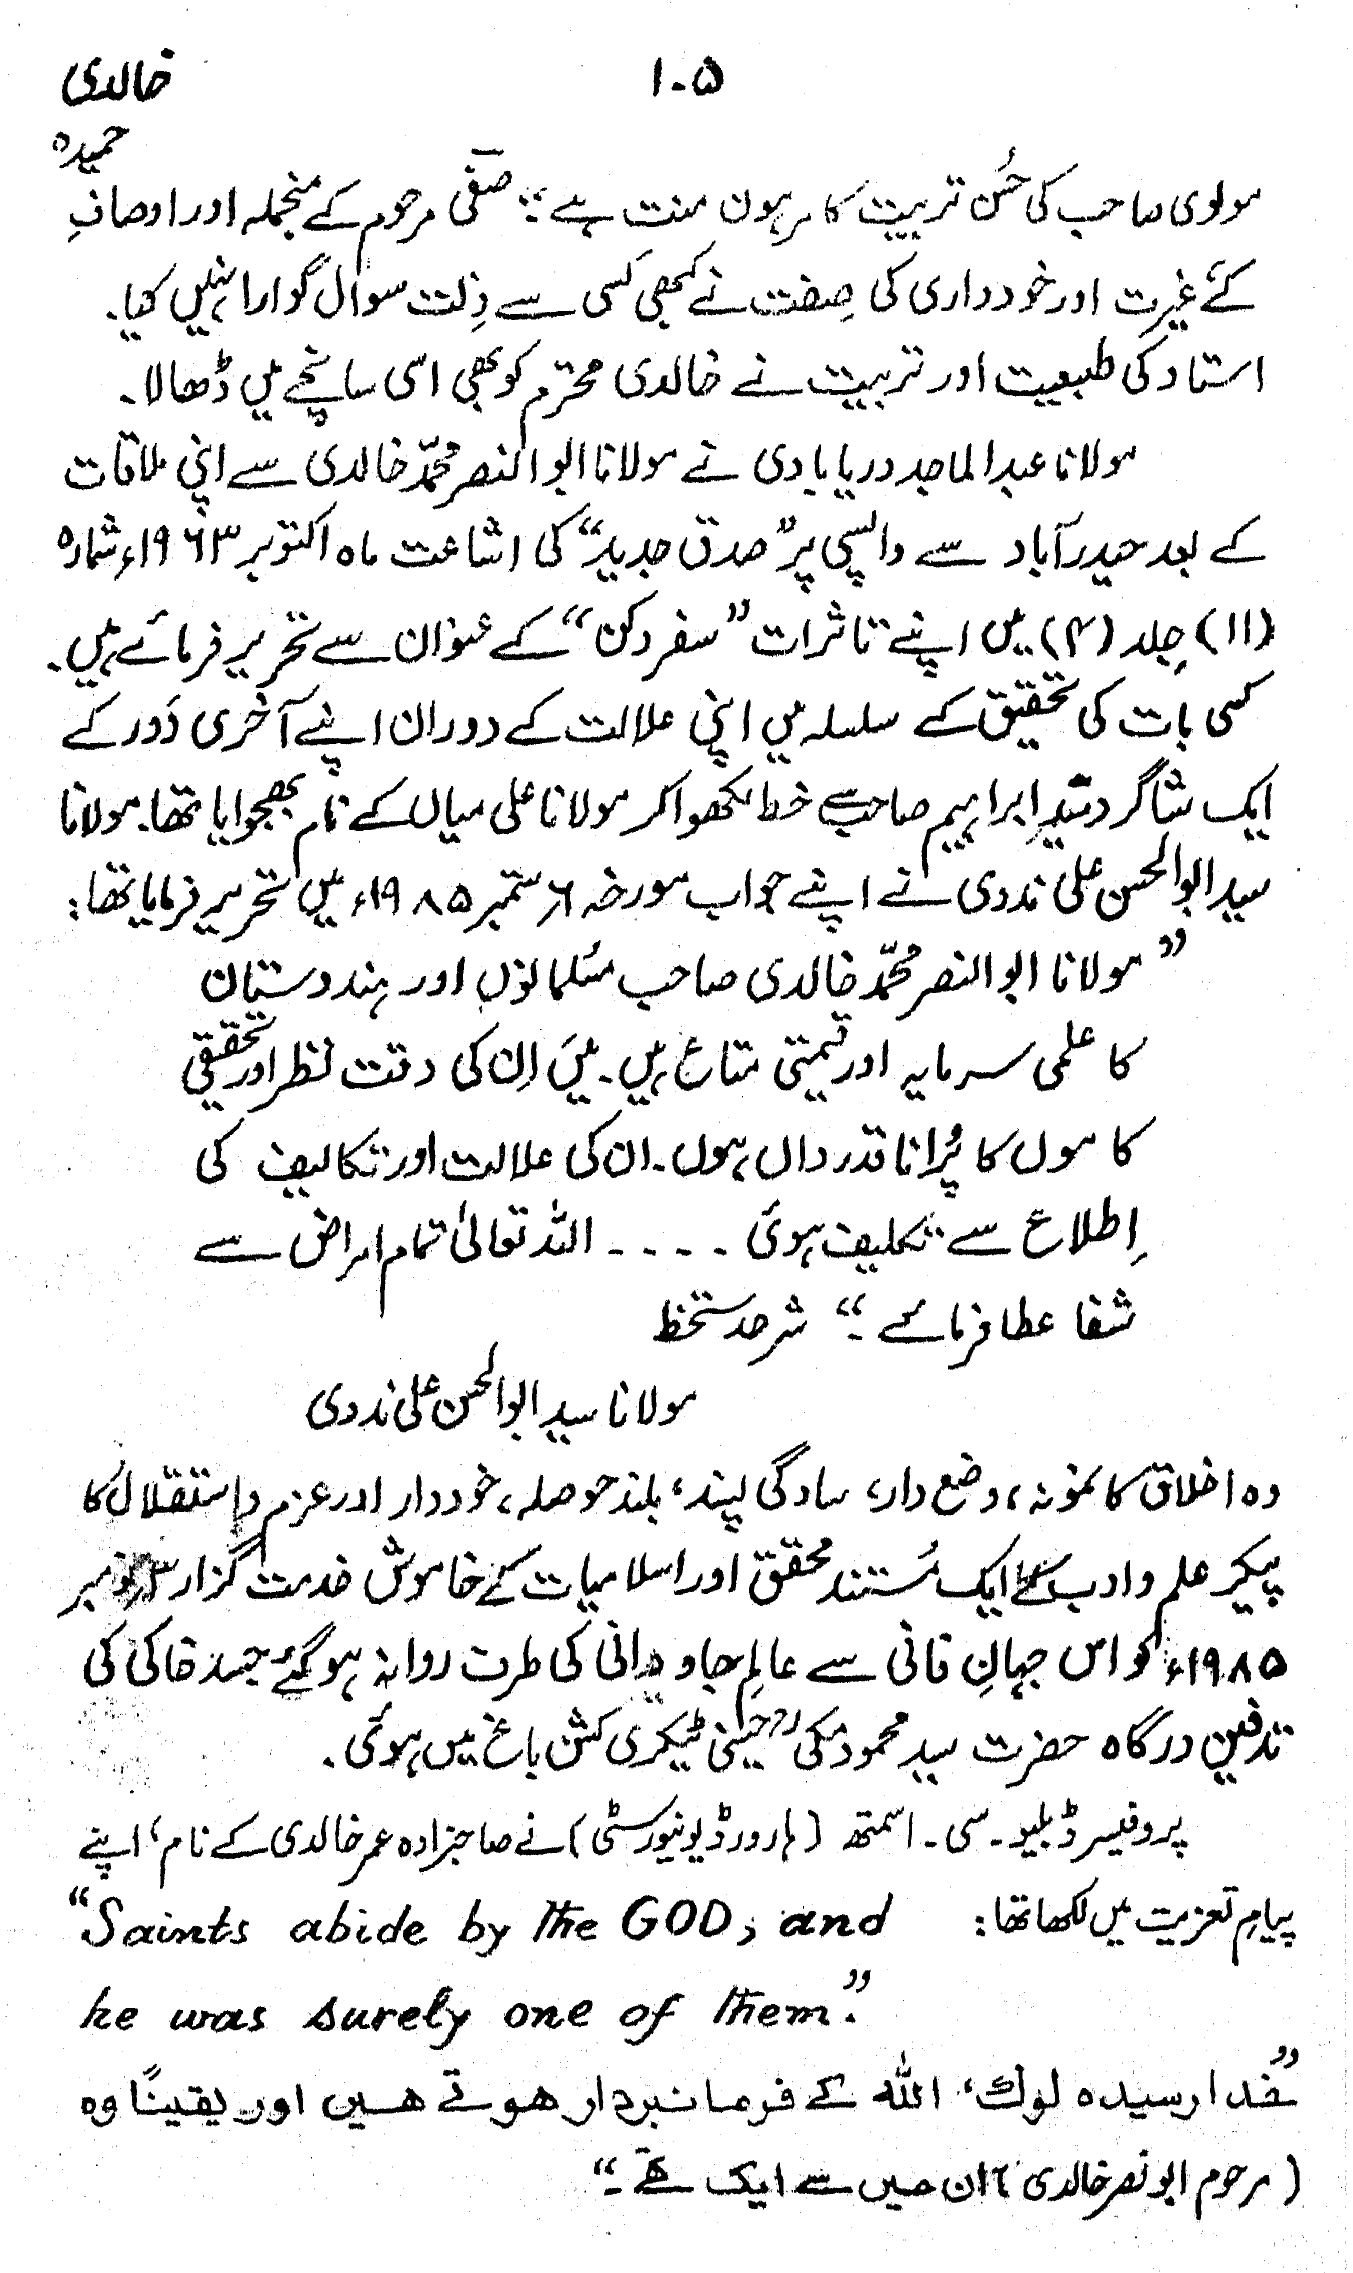 ۱۰۵
خالدی
حمیدہ
مولوی صاحب کی حُسن تربیت کا مرہون منت ہے“۔ صفؔی مرحوم کے منجملہ اور اوصافِ
کے غیرت اور خودداری کی صِفت نے کبھی کسی سے ذِلت سوال گوارا نہیں کیا۔
استاد کی طبیعت اور تربیت نے خالدی محترم کو بھی اسی سانچے میں ڈھالا۔
مولانا عبدالماجد دریابادی نے مولانا ابوالنصر محمّد خالدی سے اپنی ملاقات
کے بعد حیدرآباد سے واپسی پر ”صدق جدید“ کی اشاعت ماہ اکتوبر ۱۹۶۳ء شمارہ
(۱۱) جِلد (۴) میں اپنے تاثرات ”سفر دکن“ کے عنوان سے تحریر فرمائے ہیں۔
کسی بات کی تحقیق کے سلسلہ میں اپنی علالت کے دوران اپنے آخری دَور کے
ایک شاگرد سید ابراہیم صاحب سے خط لکھوا کر مولانا علی میاں کے نام بھجوایا تھا۔ مولانا
سید ابوالحسن علی ندوی نے اپنے جواب مورخہ ۶ ستمبر ۱۹۸۵ء میں تحریر فرمایا تھا:
”مولانا ابوالنصر محمّد خالدی صاحب مسُلمانوں اور ہندوستان
کا علمی سرمایہ اور قیمتی متاع ہیں۔ میَں اِن کی دقت نظر اور تحقیقی
کاموں کا پُرانا قدرداں ہوں۔ ان کی علالت اور تکالیف کی
اِطلاع سے تکلیف ہوئی ۔۔۔۔ اللہ تعالیٰ تمام امراض سے
شفا عطا فرمائے۔“ شرحدستخط
مولانا سید ابوالحسن علی ندوی
وہ اخلاق کا نمونہ، وضع دار، سادگی پسند، بلند حوصلہ، خوددار اور عزم و استقلال کا
پیکر علم و ادب کے ایک مُستند محقق اور اسلامیات کے خاموش خدمت گزار نومبر
۱۹۸۵ء کو اس جہانِ فانی سے عالمِ جاودانی کی طرف روانہ ہوگئے جسدِ خاکی کی
تدفین درگاہ حضرت سید محمود مکیؒ حسینی ٹیکری کشن باغ میں ہوئی۔
پروفیسر ڈبلیو۔ سی۔ اسمتھ (ہارورڈ یونیورسٹی) نے صاحبزادہ عمر خالدی کے نام، اپنے
پیامِ تعزیت میں لکھا تھا: “Saints abide by the GOD, and
he was surely one of them.”
”خُدا رسیدہ لوگ، اللہ کے فرمانبردار ہوتے ہیں اور یقینًا وہ
(مرحوم ابونصر خالدی) ان میں سے ایک تھے۔“